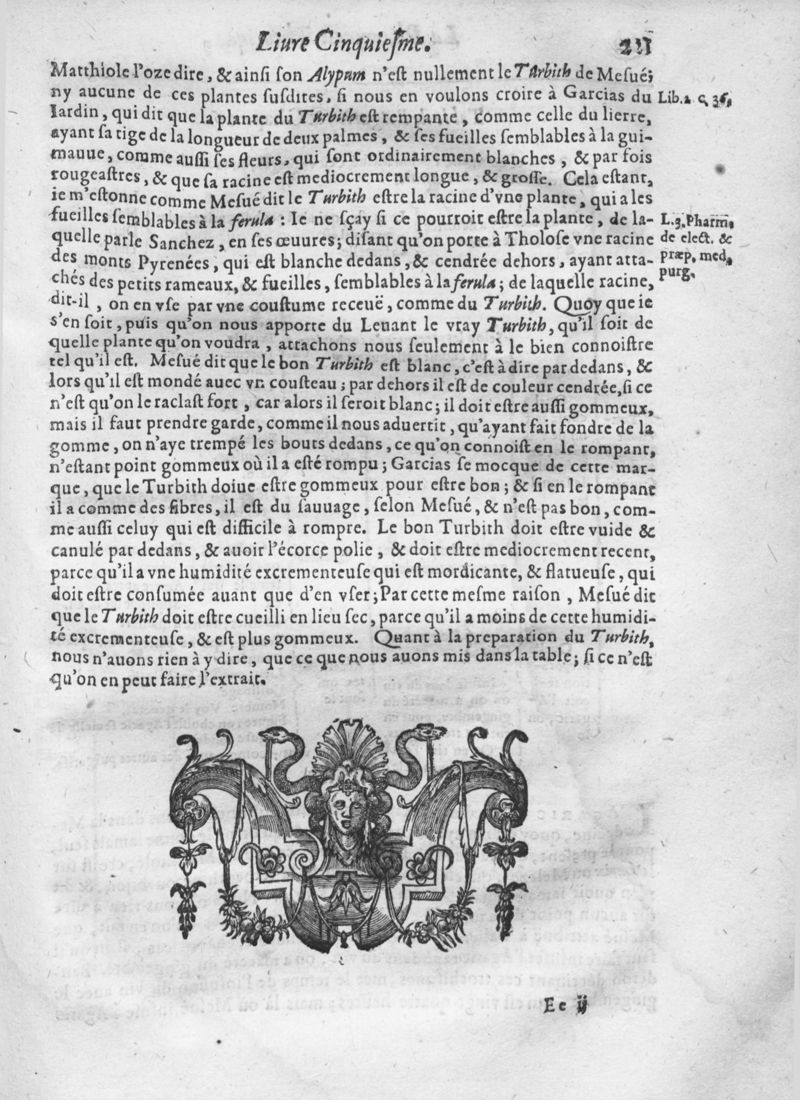 Liure Cinquieſme.
Matthiole l'oze dire, & ainſi ſon Alypum n'eſt nullement le Turbith de Meſué;
ny aucune de ces plantes ſuſdites, ſi nous en voulons croire à Garcias du
Lib. 2 c. 36,
Iardin, qui dit que la plante du Turbith eſt rempante, comme celle du lierre,
ayant ſa tige de la longueur de deux palmes, & ſes fueilles ſemblables à la gui-
mauue, comme auſſi ſes fleurs, qui ſont ordinairement blanches, & par fois
rougeaſtres, & que ſa racine eſt mediocrement longue, & groſſe. Cela eſtant,
ie m'eſtonne comme Meſué dit le Turbith eſtre la racine d'vne plante, qui a les
fueilles ſemblables à la ferula : Ie ne ſçay ſi ce pourroit eſtre la plante, de la-
L. 3. Pharm.
quelle parle Sanchez, en ſes œuures; diſant qu'on porte à Tholoſe vne racine
de elect. &
des monts Pyrenées, qui eſt blanche dedans, & cendrée dehors, ayant atta-
præp. med,
chés des petits rameaux, & fueilles, ſemblables à la ferula; de laquelle racine,
purg.
dit-il, on en vſe par vne couſtume receuë, comme du Turbith. Quoy que ie
s'en ſoit, puis qu'on nous apporte du Leuant le vray Turbith, qu'il ſoit de
quelle plante qu'on voudra, attachons nous ſeulement à le bien connoiſtre
tel qu'il eſt. Meſué dit que le bon Turbith eſt blanc, c'eſt à dire par dedans, &
lors qu'il eſt mondé auec vn couſteau; par dehors il eſt de couleur cendrée, ſi ce
n'eſt qu'on le raclaſt fort, car alors il ſeroit blanc; il doit eſtre auſſi gommeux,
mais il faut prendre garde, comme il nous aduertit, qu'ayant fait fondre de la
gomme, on n'aye trempé les bouts dedans, ce qu'on connoiſt en le rompant,
n'eſtant point gommeux où il a eſté rompu; Garcias ſe mocque de cette mar-
que, que le Turbith doiue eſtre gommeux pour eſtre bon; & ſi en le rompant
il a comme des fibres, il eſt du ſauuage, ſelon Meſué, & n'eſt pas bon, com-
me auſſi celuy qui eſt difficile à rompre. Le bon Turbith doit eſtre vuide &
canulé par dedans, & auoir l'écorce polie, & doit eſtre mediocrement recent,
parce qu'il a vne humidité excrementeuſe qui eſt mordicante, & flatueuſe, qui
doit eſtre conſumée auant que d'en vſer; Par cette meſme raiſon, Meſué dit
que le Turbith doit eſtre cueilli en lieu ſec, parce qu'il a moins de cette humidi-
té excrementeuſe, & eſt plus gommeux. Quant à la preparation du Turbith,
nous n'auons rien à y dire, que ce que nous auons mis dans la table; ſi ce n'eſt
qu'on en peut faire l'extrait.
Ee ij